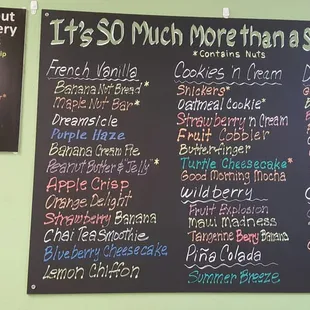 out
ery
lp
It's SO Much More than a S
*Contains Nuts
French Vanilla
Banana Nut Bread*
Maple Nut Bar*
Dreamsicle
Purple Haze
Banana Cream Pie
Peanut Butter & "Jelly"*
Apple Crisp
Orange Delight
Strawberry Banana
Chai Tea Smoothie
Blueberry Cheesecake
Lemon Chiffon
Cookies 'n Cream
Snickers*
Oatmeal Cookie*
Strawberry 'n Cream
Fruit Cobbler
Butterfinger
Turtle Cheesecake*
Good Morning Mocha
Wildberry
Fruit Explosion
Maui Madness
Tangerine Berry Banana
Piña Colada
Summer Breeze